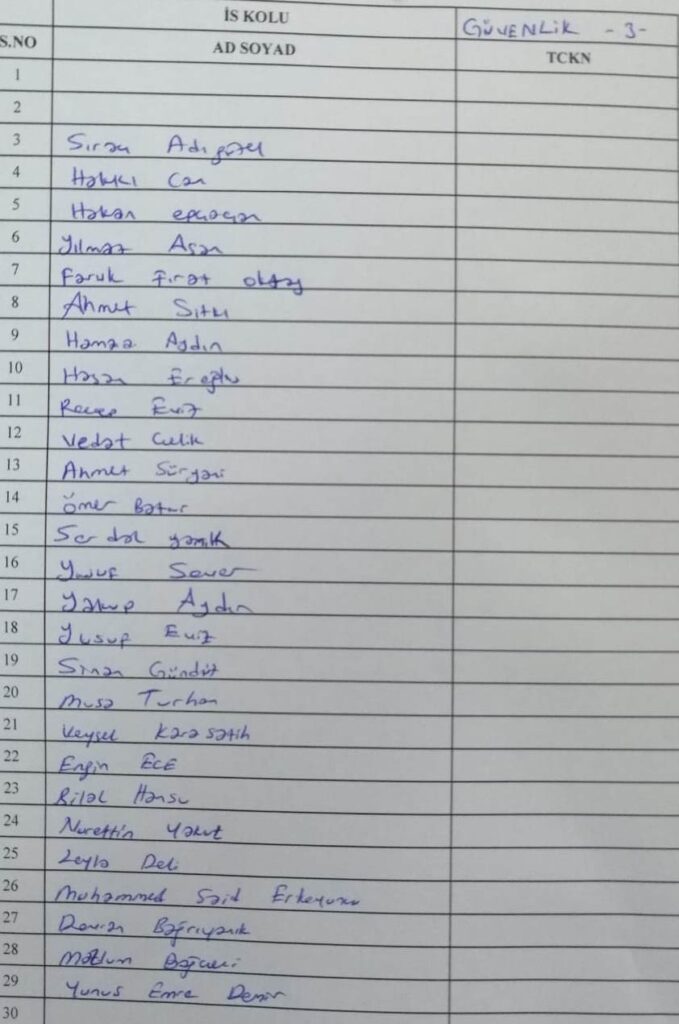 İS KOLU GÜVENLİK -3-
S.NO AD SOYAD TCKN
1
2
3 Sinan Adıgüzel
4 Hakkı Can
5 Hakan
6 Yılmaz Asan
7 Faruk Fırat oktay
8 Ahmet Sıtkı
9 Hamza Aydın
10 Hasan Eroğlu
11 Recep Evız
12 Vedat Çelik
13 Ahmet
14 Ömer Batur
15 Serdal yamık
16 Yusuf Sever
17 Yakup Aydın
18 Yusuf Evız
19 Sinan Gündüz
20 Musa Turhan
21 Veysel Kara satih
22 Engin ECE
23 Bilal Hansu
24 Nurettin Yakut
25 Leyla Deli
26 Muhammed Said
27 Devran Bağrıyanık
28 Mazlum
29 Yunus Emre Demir
30